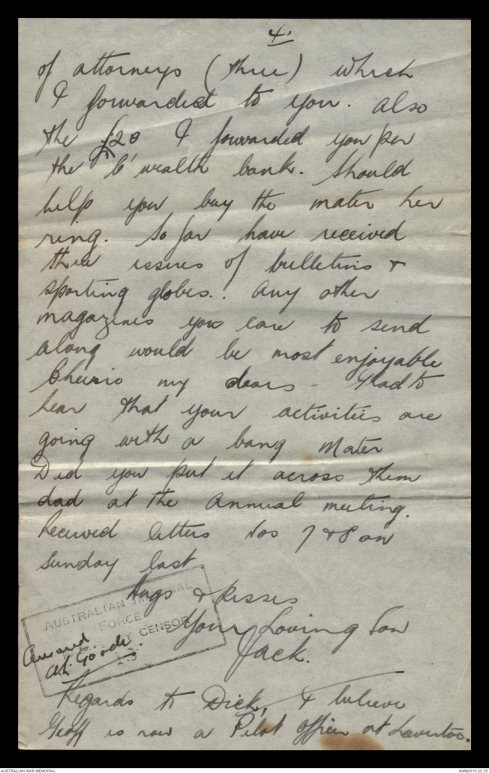 4.
of attorneys (three) which
I forwarded to you. Also
the £20 I forwarded you per
the C'wealth bank. Should
help you buy the mater her
ring. So far have received
three issues of bulletins +
sporting globes. Any other
magazines you care to send
along would be most enjoyable
Cheerio my dears - Glad to
hear that your activities are
going with a bang Mater
Did you put it across them
dad at the Annual meeting.
Received letters Nos 7 & 8 on
Sunday last
Hugs & Kisses
Your Loving Son
Jack.
AUSTRALIAN IMPERIAL
FORCE
CENSOR
Regards to Dick, I believe
Geoff is now a Pilot officer at Laverton.
AUSTRALIAN WAR MEMORIAL